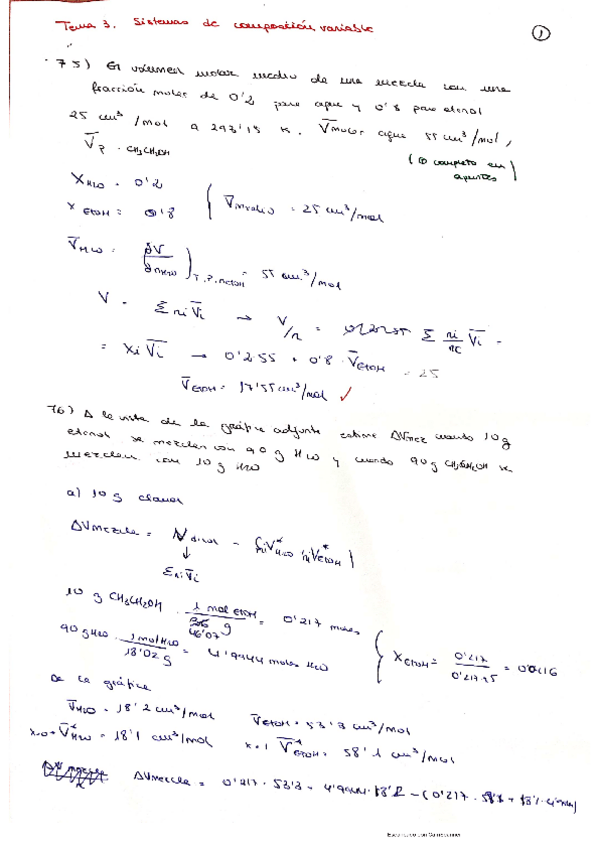 Tema 3. Sistemas de composición variable
1
75) El volumen molar medio de una mezcla con una
fracción molar de 0'2 para agua y 0'8 para etanol
25 cm³/mol a 293'15 K. V̄ agua 55 cm³/mol,
V̄? CH₃CH₂OH
(⊙ completo en apuntes)
X H₂O = 0'2
X EtOH = 0'8 { V̄medio = 25 cm³/mol
V̄H₂O = ∂V/∂nH₂O )T,P,nEtOH = 55 cm³/mol
V = Σ ni V̄i → V/n = Σ ni/nt V̄i =
= Xi V̄i → 0'2·55 + 0'8 · V̄EtOH = 25
V̄EtOH = 17'55 cm³/mol ✓
76) A la vista de la gráfica adjunta estime ΔVmez cuando 10 g
etanol se mezclan con 90 g H₂O y cuando 90 g CH₃CH₂OH se
mezclan con 10 g H₂O
a) 10 g etanol
ΔVmezcla = V disol - (niV*H₂O + niV*EtOH)
↓
Σ ni V̄i
10 g CH₃CH₂OH · 1 mol EtOH / 46'07 g = 0'217 moles
90 g H₂O · 1 mol H₂O / 18'02 g = 4'9444 moles H₂O
{ XEtOH = 0'217 / 0'217·25 = 0'0416
De la gráfica
V̄H₂O = 18'2 cm³/mol V̄EtOH = 53'3 cm³/mol
x=0 → V̄*H₂O = 18'1 cm³/mol x=1 V̄*EtOH = 58'1 cm³/mol
ΔVmezcla = 0'217 · 53'3 +
Escaneado con CamScanner